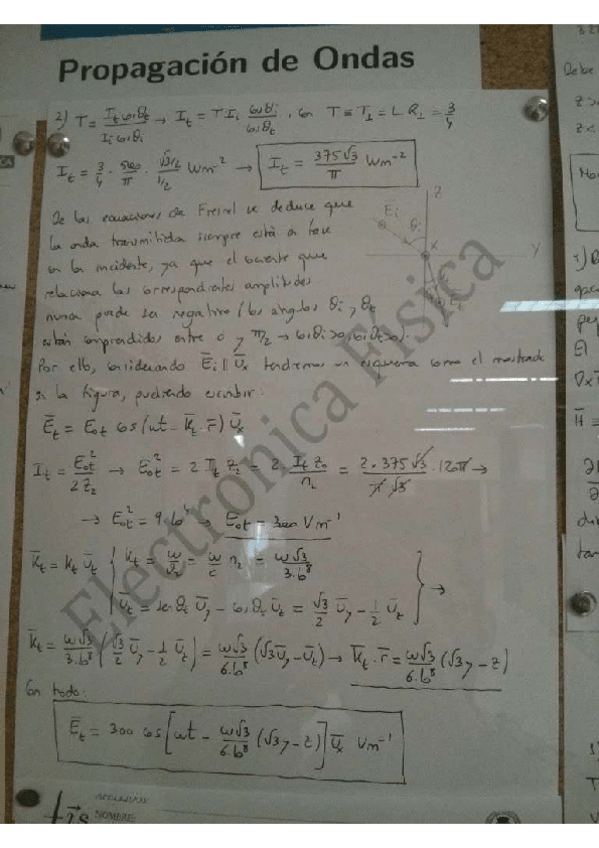 Propagación de Ondas
2) T = It cosθt / Ii cosθi → It = T Ii cosθi / cosθt, con T ≡ T⊥ = 1-R⊥ = 3/4
It = 3/4 · 500/π · (√3/2)/(1/2) Wm⁻² → It = 375√3/π Wm⁻²
De las ecuaciones de Fresnel se deduce que
la onda transmitida siempre está en fase
con la incidente, ya que el cociente que
relaciona las correspondientes amplitudes
nunca puede ser negativo (los ángulos θi y θt
están comprendidos entre 0 y π/2 → cosθi>0, cosθt>0).
Por ello, considerando Ēi ∥ Ūx tendremos un esquema como el mostrado
en la figura, pudiendo escribir:
Ēt = Eot cos(ωt - k̄t · r̄) Ūx
It = Eot²/2Z2 → Eot² = 2 It Z2 = 2 · It Z0/n2 = 2·375√3·120π/π·√3 →
→ Eot² = 9·10⁴ → Eot = 300 Vm⁻¹
k̄t = kt Ūt { kt = ω/v2 = ω/c n2 = ω√3/3·10⁸
Ūt = senθt Ūy - cosθt Ūz = √3/2 Ūy - 1/2 Ūz } →
k̄t = ω√3/3·10⁸ (√3/2 Ūy - 1/2 Ūz) = ω√3/6·10⁸ (√3Ūy - Ūz) → k̄t · r̄ = ω√3/6·10⁸ (√3y - z)
Con todo:
Ēt = 300 cos[ωt - ω√3/6·10⁸ (√3y - z)] Ūx Vm⁻¹
Z
Ei
θi
X
Y
Electronica Fisica
NOMBRE:
Debe
z>
z<
El